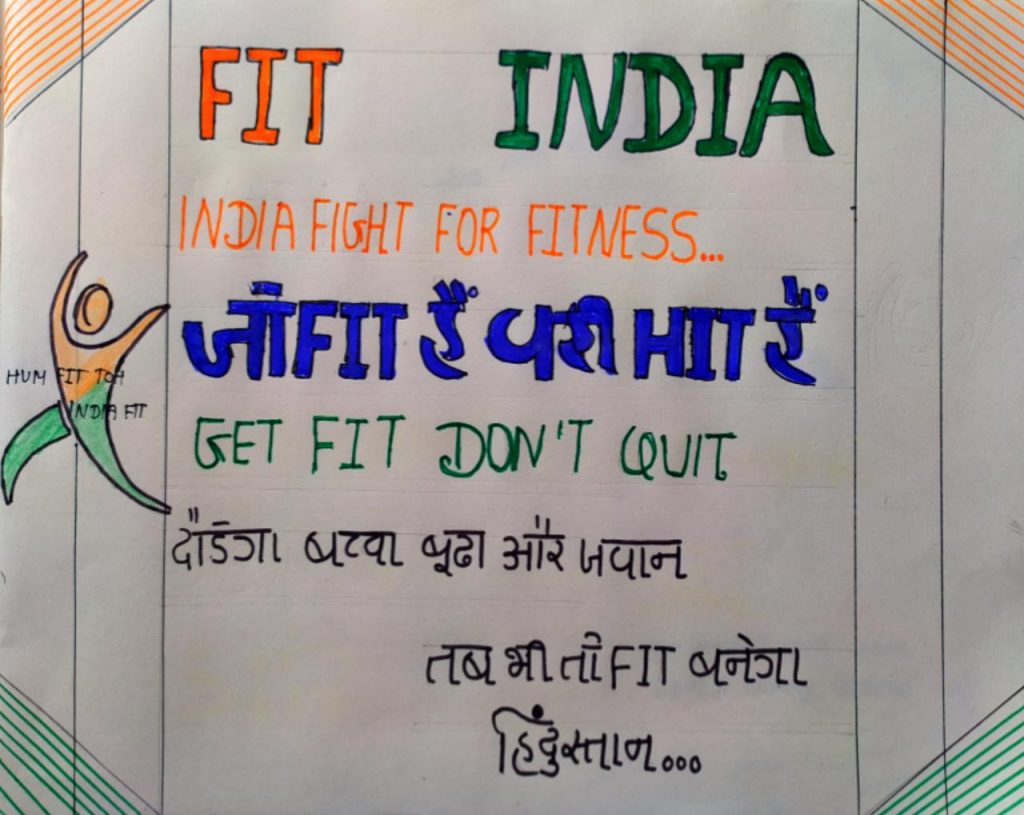 FIT INDIA
INDIA FIGHT FOR FITNESS...
जो FIT हैं वही HIT हैं
HUM FIT TOH
INDIA FIT
GET FIT DON'T QUIT
दौडेगा बच्चा बूढा और जवान
तब भी तो FIT बनेगा
हिंदुस्तान...